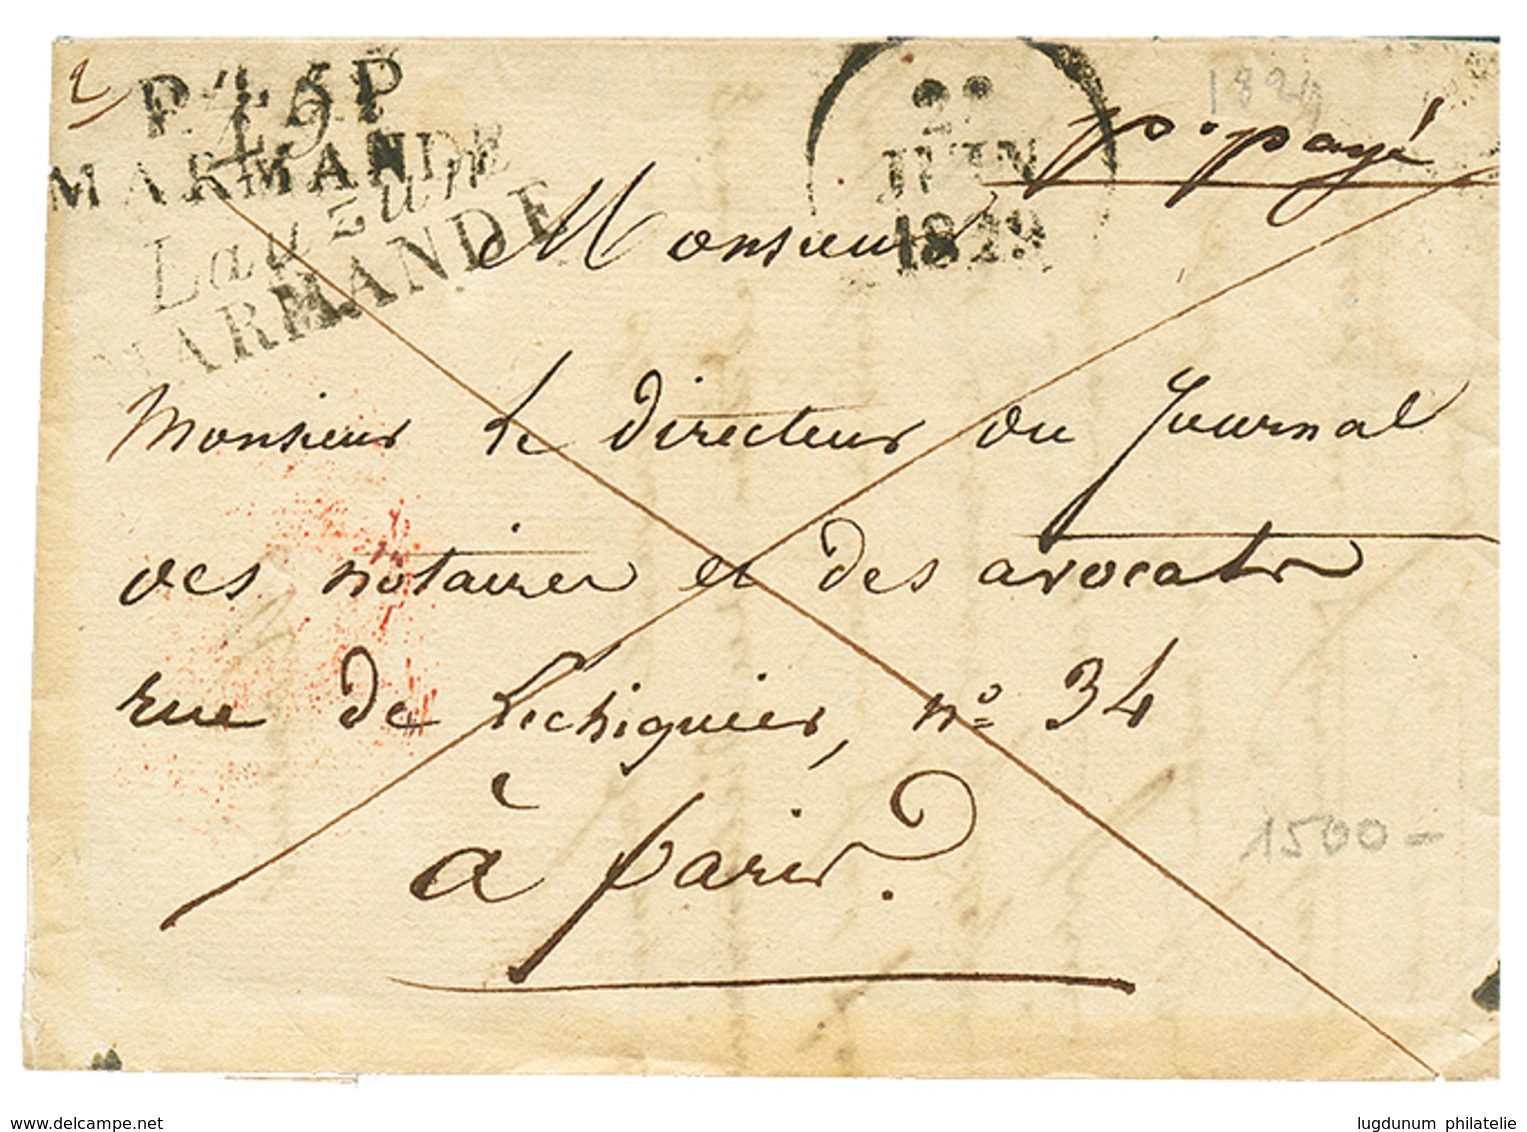 P.45.P
MARMANDE
45
Lauzun
MARMANDE
22
JUIN
1829
1829
p. payé
Monsieur
Monsieur Le directeur du Journal
des notaires et des avocats
rue de Lechiquier, n° 34
à paris.
1500-
www.delcampe.net
lugdunum philatelie